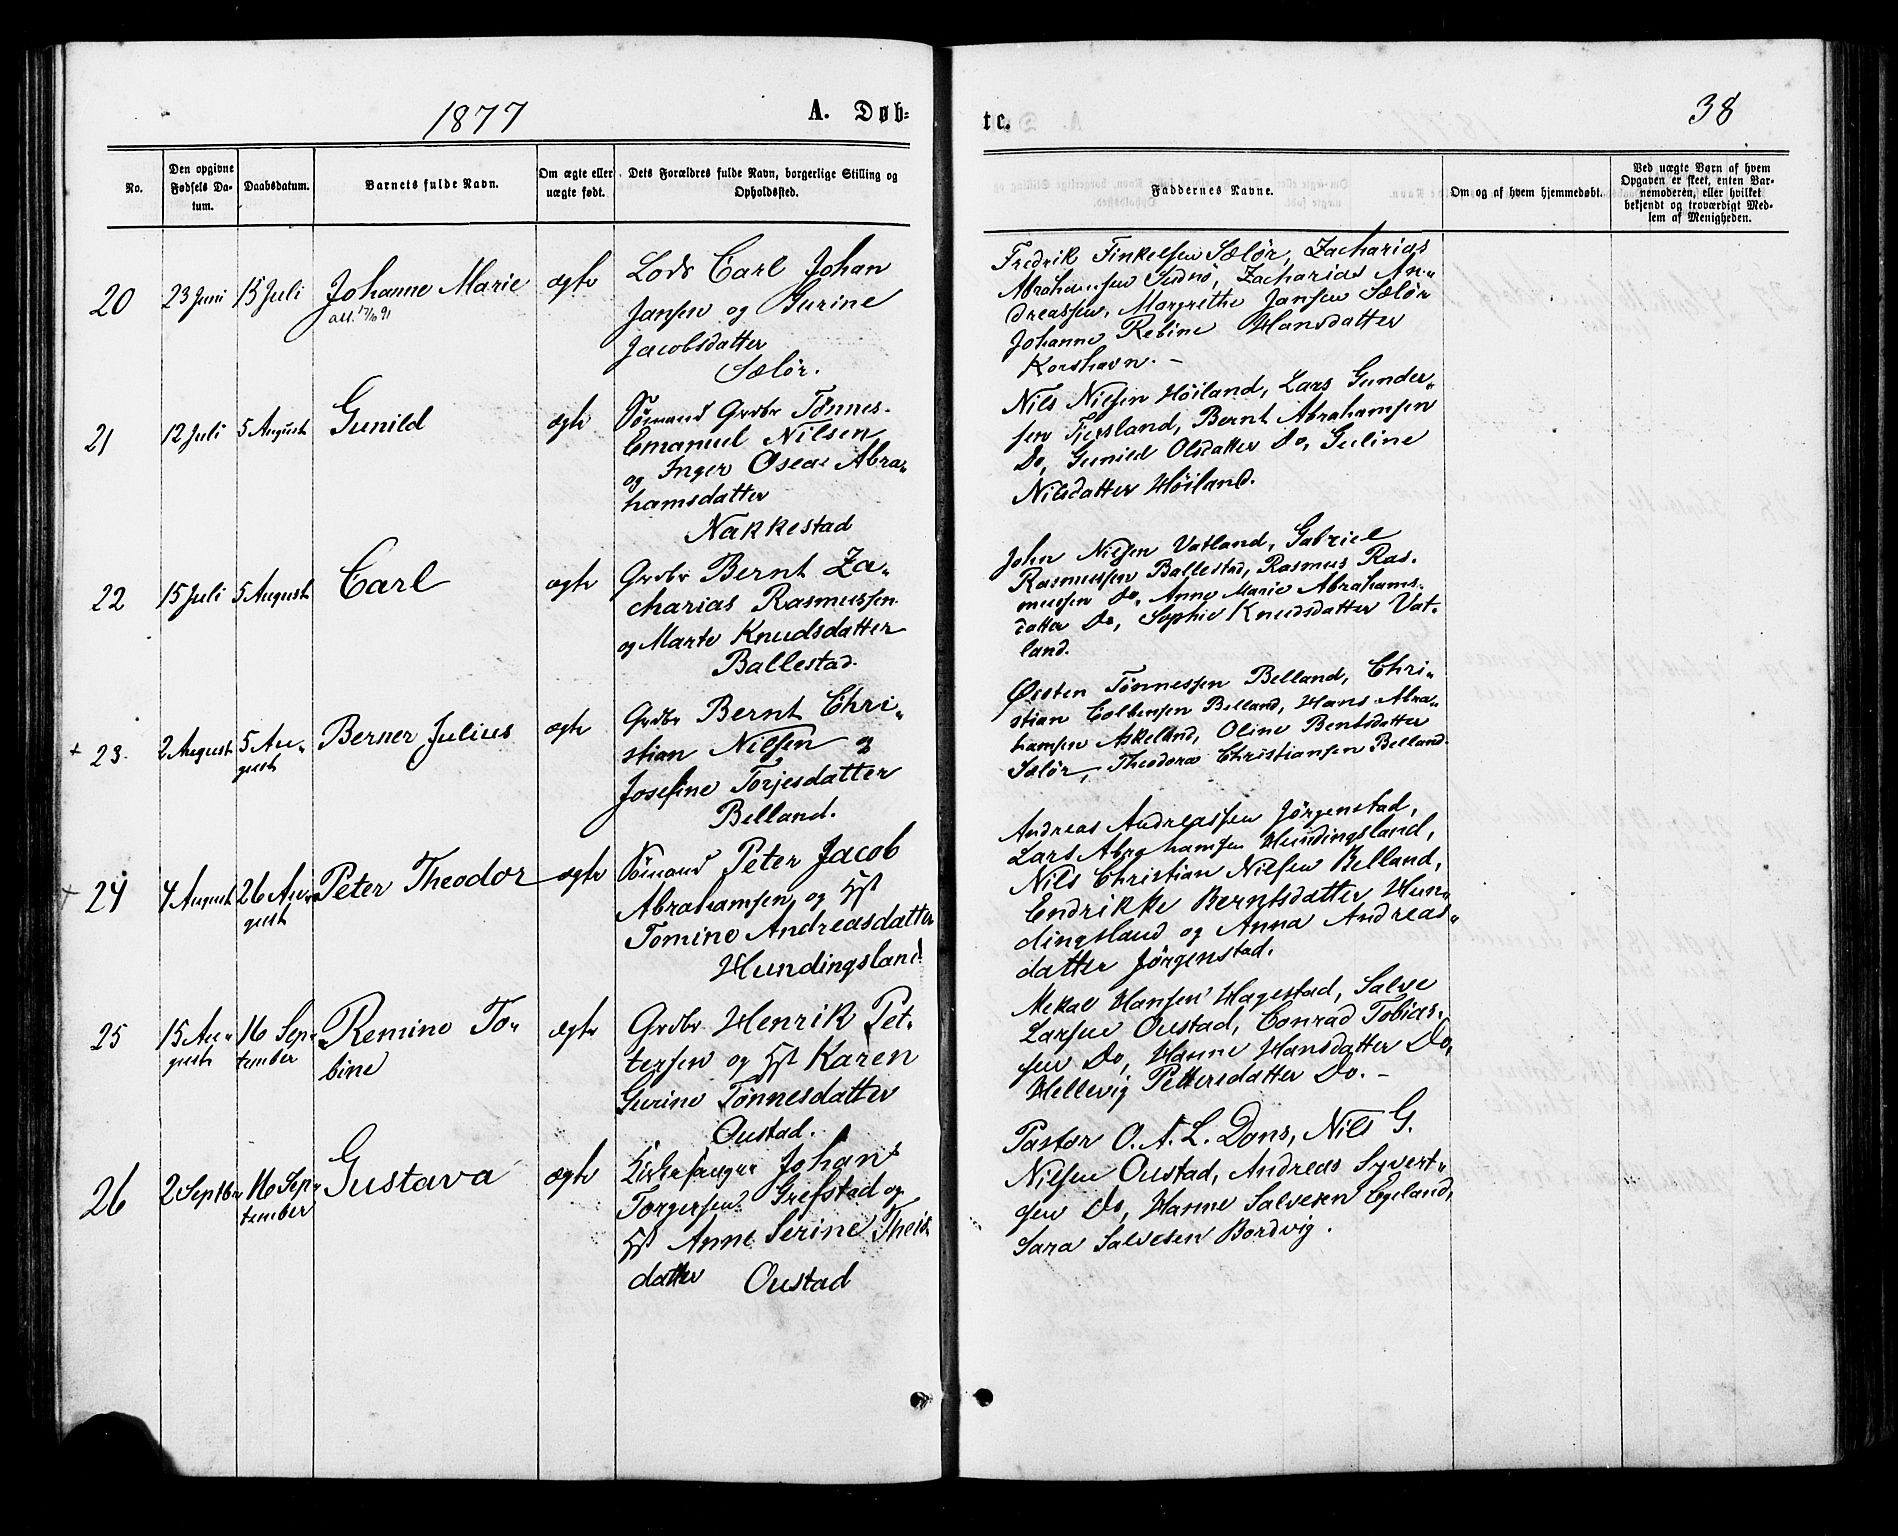 1877
A. Døb-
te.
38
No.
Den opgivne Fødsels Da-tum.
Daabsdatum.
Barnets fulde Navn.
Om ægte eller uægte født.
Dets Forældres fulde Navn, borgerlige Stilling og Opholdssted.
Faddernes Navne.
Om og af hvem hjemmedøbt.
Ved uægte Børn af hvem Opgaven er skeet, enten Bar-nemoderen, eller hvilket bekjendt og troværdigt Med-lem af Menigheden.
20
23 Juni
15 Juli
Johanne Marie
ægte
Lods Carl Johan
Jansen og Gurine
Jacobsdatter
Sælør.
Fredrik Finkelsen Sælør, Zacharias
Abrahamsen Sudnø, Zacharias An-
dreassen, Margrethe Jansen Sælør
Johanne Rebine Hansdatter
Korshavn. –
21
12 Juli
5 August
Gunild
ægte
Sømand Grdbr Tønnes
Emanuel Nilsen
og Inger Oseae Abra-
hamsdatter
Nakkestad
Nils Nilsen Høiland, Lars Gunder-
sen Fjersland, Bernt Abrahamsen
Do, Gunild Olsdatter Do, Guline
Nilsdatter Høiland.
22
15 Juli
5 August
Carl
ægte
Grdbr Bernt Za-
charias Rasmussen
og Marte Knudsdatter
Ballestad.
John Nilsen Vatland, Gabriel
Rasmussen Ballestad, Rasmus Ras-
mussen Do, Anne Marie Abrahams-
datter Do, Sophie Knudsdatter Vat-
land.
+ 23.
2 August
5 Au-
gust
Berner Julius
ægte
Grdbr Bernt Chri-
stian Nilsen og
Josefine Torjesdatter
Belland.
Østen Tønnessen Belland, Chri-
stian Colbensen Belland, Hans Abra-
hamsen Askeland, Oline Bentsdatter
Sælør, Theodora Christiansen Belland.
+ 24
4 August
26 Au-
gust
Peter Theodor
ægte
Sømand Peter Jacob
Abrahamsen og Hst
Tomine Andreasdatter
Hundingsland
Andreas Andreassen Jörgenstad,
Lars Abrahamsen Hundingsland,
Nils Christian Nilsen Belland,
Endrikke Berntsdatter Hun-
dingsland og Anna Andreas-
datter Jörgenstad.
25
15 Au-
gust
16 Sep-
tember
Remine To-
bine
ægte
Grdbr Henrik Pet-
tersen og Hst Karen
Gurine Tønnesdatter
Oustad.
Mekal Hansen Hagestad, Salve
Larsen Oustad, Conrad Tobias-
sen Do, Hanne Hansdatter Do,
Hellevig Pettersdatter Do. –
26
2 Septbr
16 Sep-
tember
Gustava
ægte
Kirkesanger Johan
Torgersen Grefstad og
Hst Anne Serine Theis-
datter Oustad
Pastor O. A. L. Dons, Nils G.
Nilsen Oustad, Andreas Syvert-
sen Do, Hanne Salvesen Egeland,
Sara Salvesen Bordvig.